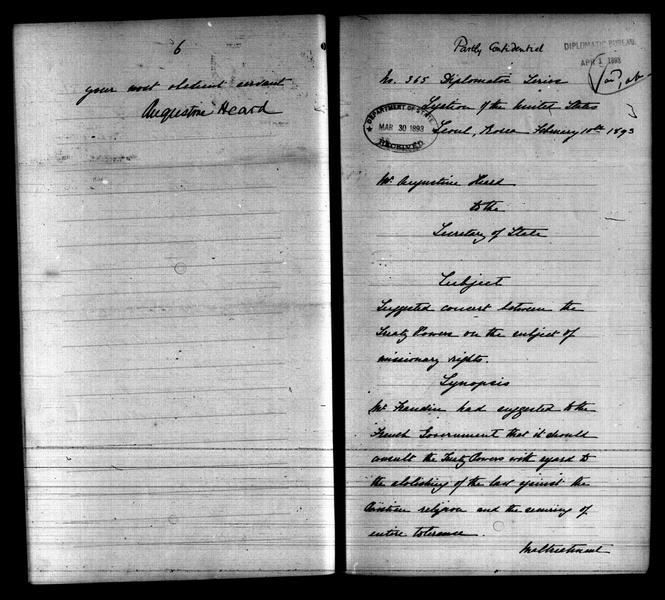 6
your most obedient servant
Augustine Heard
Partly Confidential
DIPLOMATIC BUREAU.
APR 1 1893
No. 365 Diplomatic Series
Legation of the United States
DEPARTMENT OF STATE
MAR 30 1893
RECEIVED
Seoul, Korea February 10th 1893
Mr Augustine Heard
to the
Secretary of State
Subject
Suggested concert between the
Treaty Powers on the subject of
missionary rights.
Synopsis
Mr Frandin had suggested to the
French Government that it should
consult the Treaty Powers with regard to
the abolishing of the law against the
Christian religion and the securing of
entire tolerance.
Maltreatment